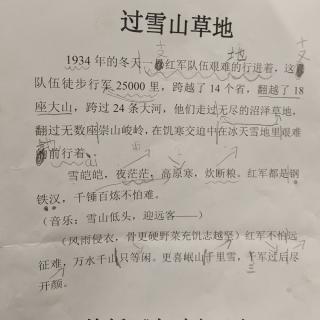 过雪山草地
1934年的冬天一支红军队伍艰难的行进着，这支
队伍徒步行军25000里，跨越了14个省，翻越了18
座大山，跨过24条大河，他们走过无尽的沼泽草地，
翻过无数座崇山峻岭，在饥寒交迫中在冰天雪地里艰难
前行着、
雪皑皑，夜茫茫，高原寒，炊断粮。红军都是钢
铁汉，千锤百炼不怕难。
（音乐：雪山低头，迎远客——）
（风雨侵衣，骨更硬野菜充饥志越坚）红军不怕远
征难，万水千山只等闲。更喜岷山千里雪，三军过后尽
开颜。